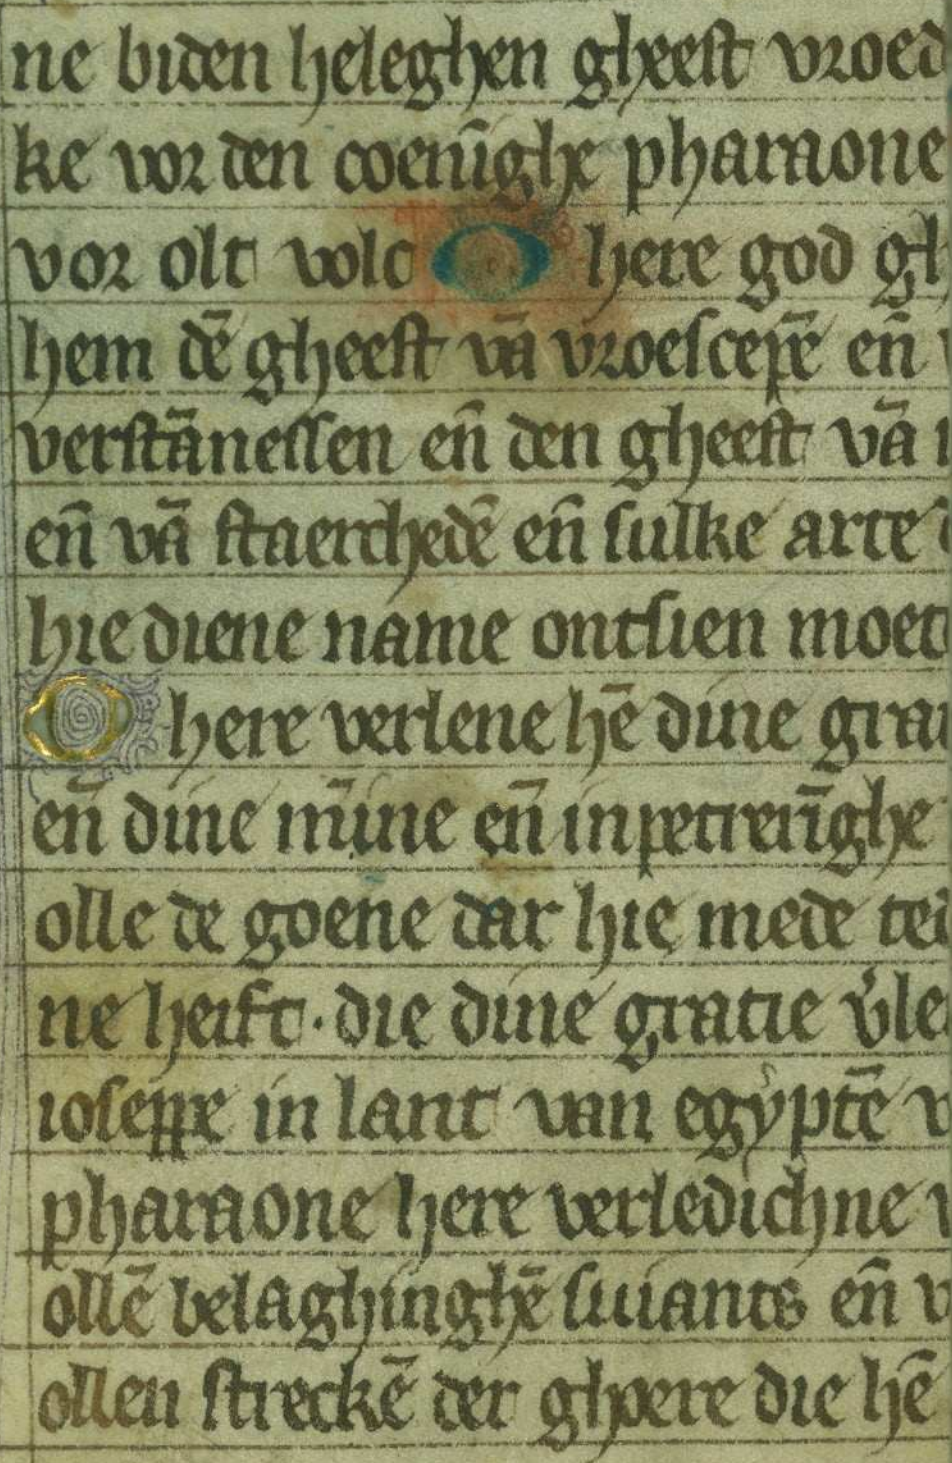 ne biden heleghen gheest vroed
ke vor den coenīghe pharaone
vor olt volc O here god gh
hem dē gheest vā vroescepē en̄
verstānessen en̄ den gheest vā
en̄ vā staerchedē en̄ sulke arte
hie diene name ontsien moet
O here verlene hē dine gra
en̄ dine mīne en̄ inpetrerīghe
olle de goene dar hie mede
ne heift · die dine gratie v̄le
ioseppe in lant van egyptē
pharaone here verledichne
ollē belaghinghē suiants en̄
ollen streckē der ghoere die hē